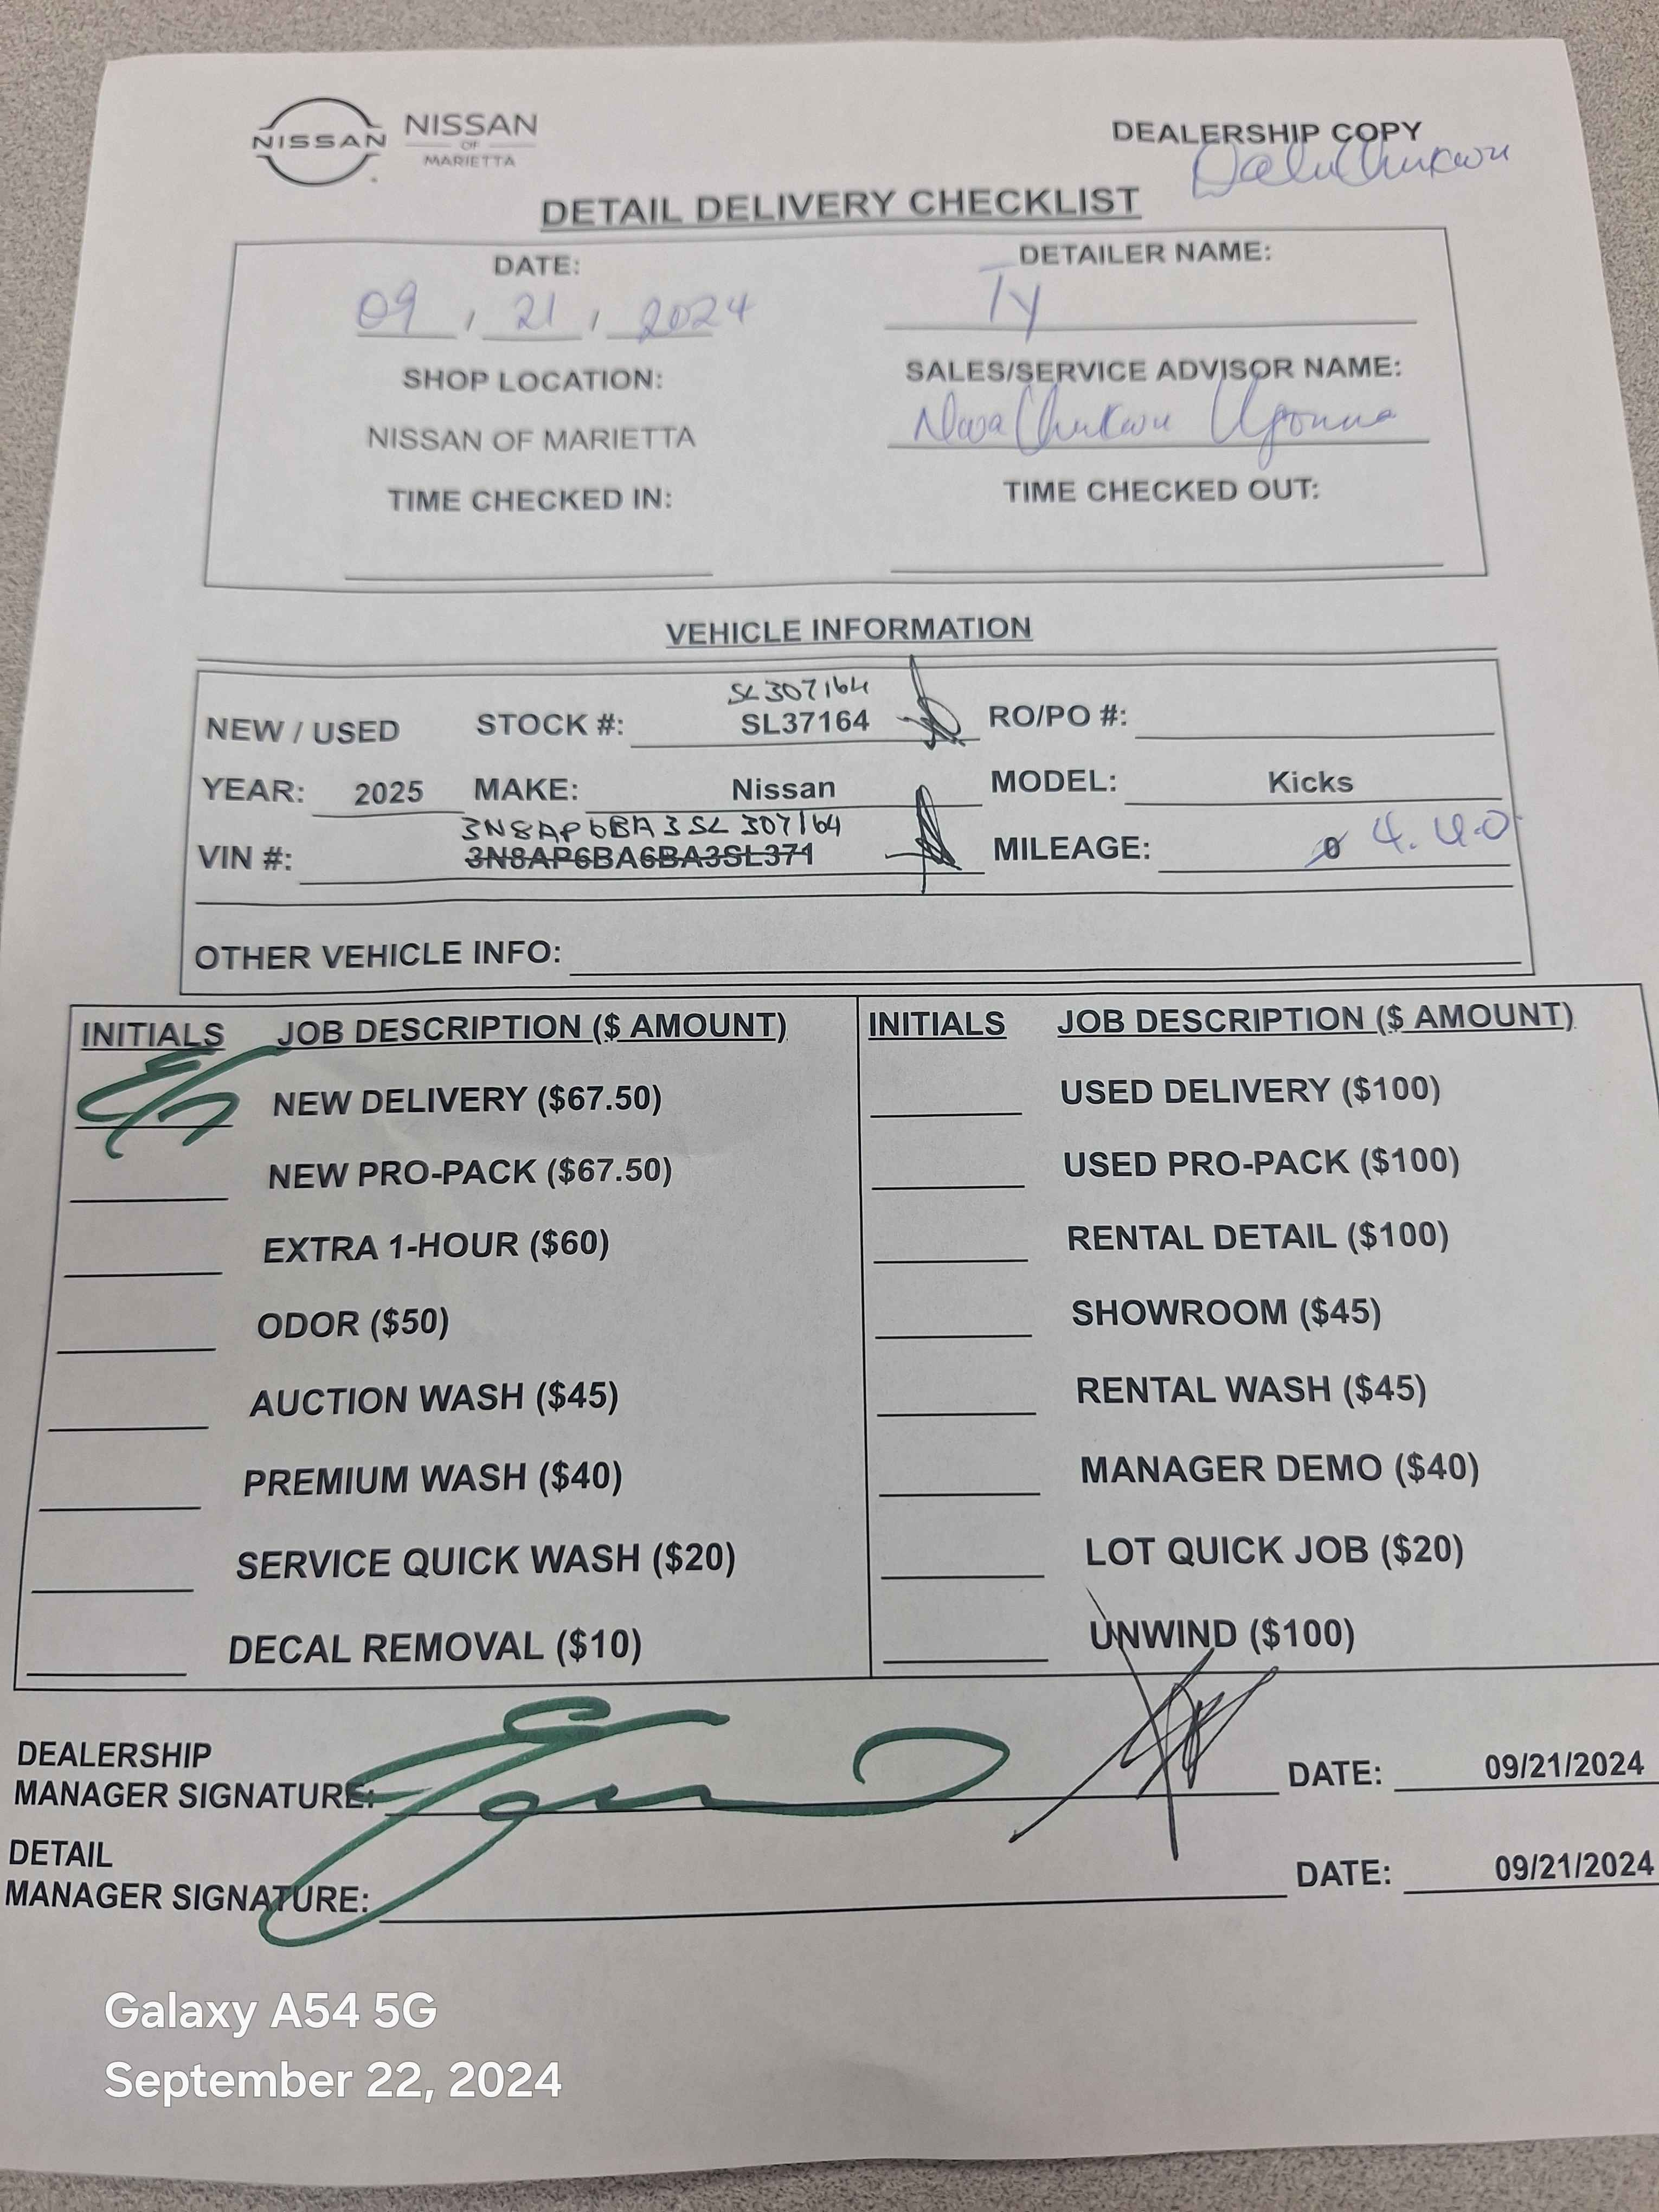 NISSAN
NISSAN
OF
MARIETTA
DEALERSHIP COPY
DETAIL DELIVERY CHECKLIST
DATE: DETAILER NAME:
09 / 21 / 2024 Ty
SHOP LOCATION: SALES/SERVICE ADVISOR NAME:
NISSAN OF MARIETTA
TIME CHECKED IN: TIME CHECKED OUT:
VEHICLE INFORMATION
SL307164
NEW / USED STOCK #: SL37164 RO/PO #:
YEAR: 2025 MAKE: Nissan MODEL: Kicks
3N8AP6BA3SL307164
VIN #: 3N8AP6BA6BA3SL371 MILEAGE: 0
OTHER VEHICLE INFO:
INITIALS JOB DESCRIPTION ($ AMOUNT) INITIALS JOB DESCRIPTION ($ AMOUNT)
NEW DELIVERY ($67.50) USED DELIVERY ($100)
NEW PRO-PACK ($67.50) USED PRO-PACK ($100)
EXTRA 1-HOUR ($60) RENTAL DETAIL ($100)
ODOR ($50) SHOWROOM ($45)
AUCTION WASH ($45) RENTAL WASH ($45)
PREMIUM WASH ($40) MANAGER DEMO ($40)
SERVICE QUICK WASH ($20) LOT QUICK JOB ($20)
DECAL REMOVAL ($10) UNWIND ($100)
DEALERSHIP
MANAGER SIGNATURE: DATE: 09/21/2024
DETAIL
MANAGER SIGNATURE: DATE: 09/21/2024
Galaxy A54 5G
September 22, 2024